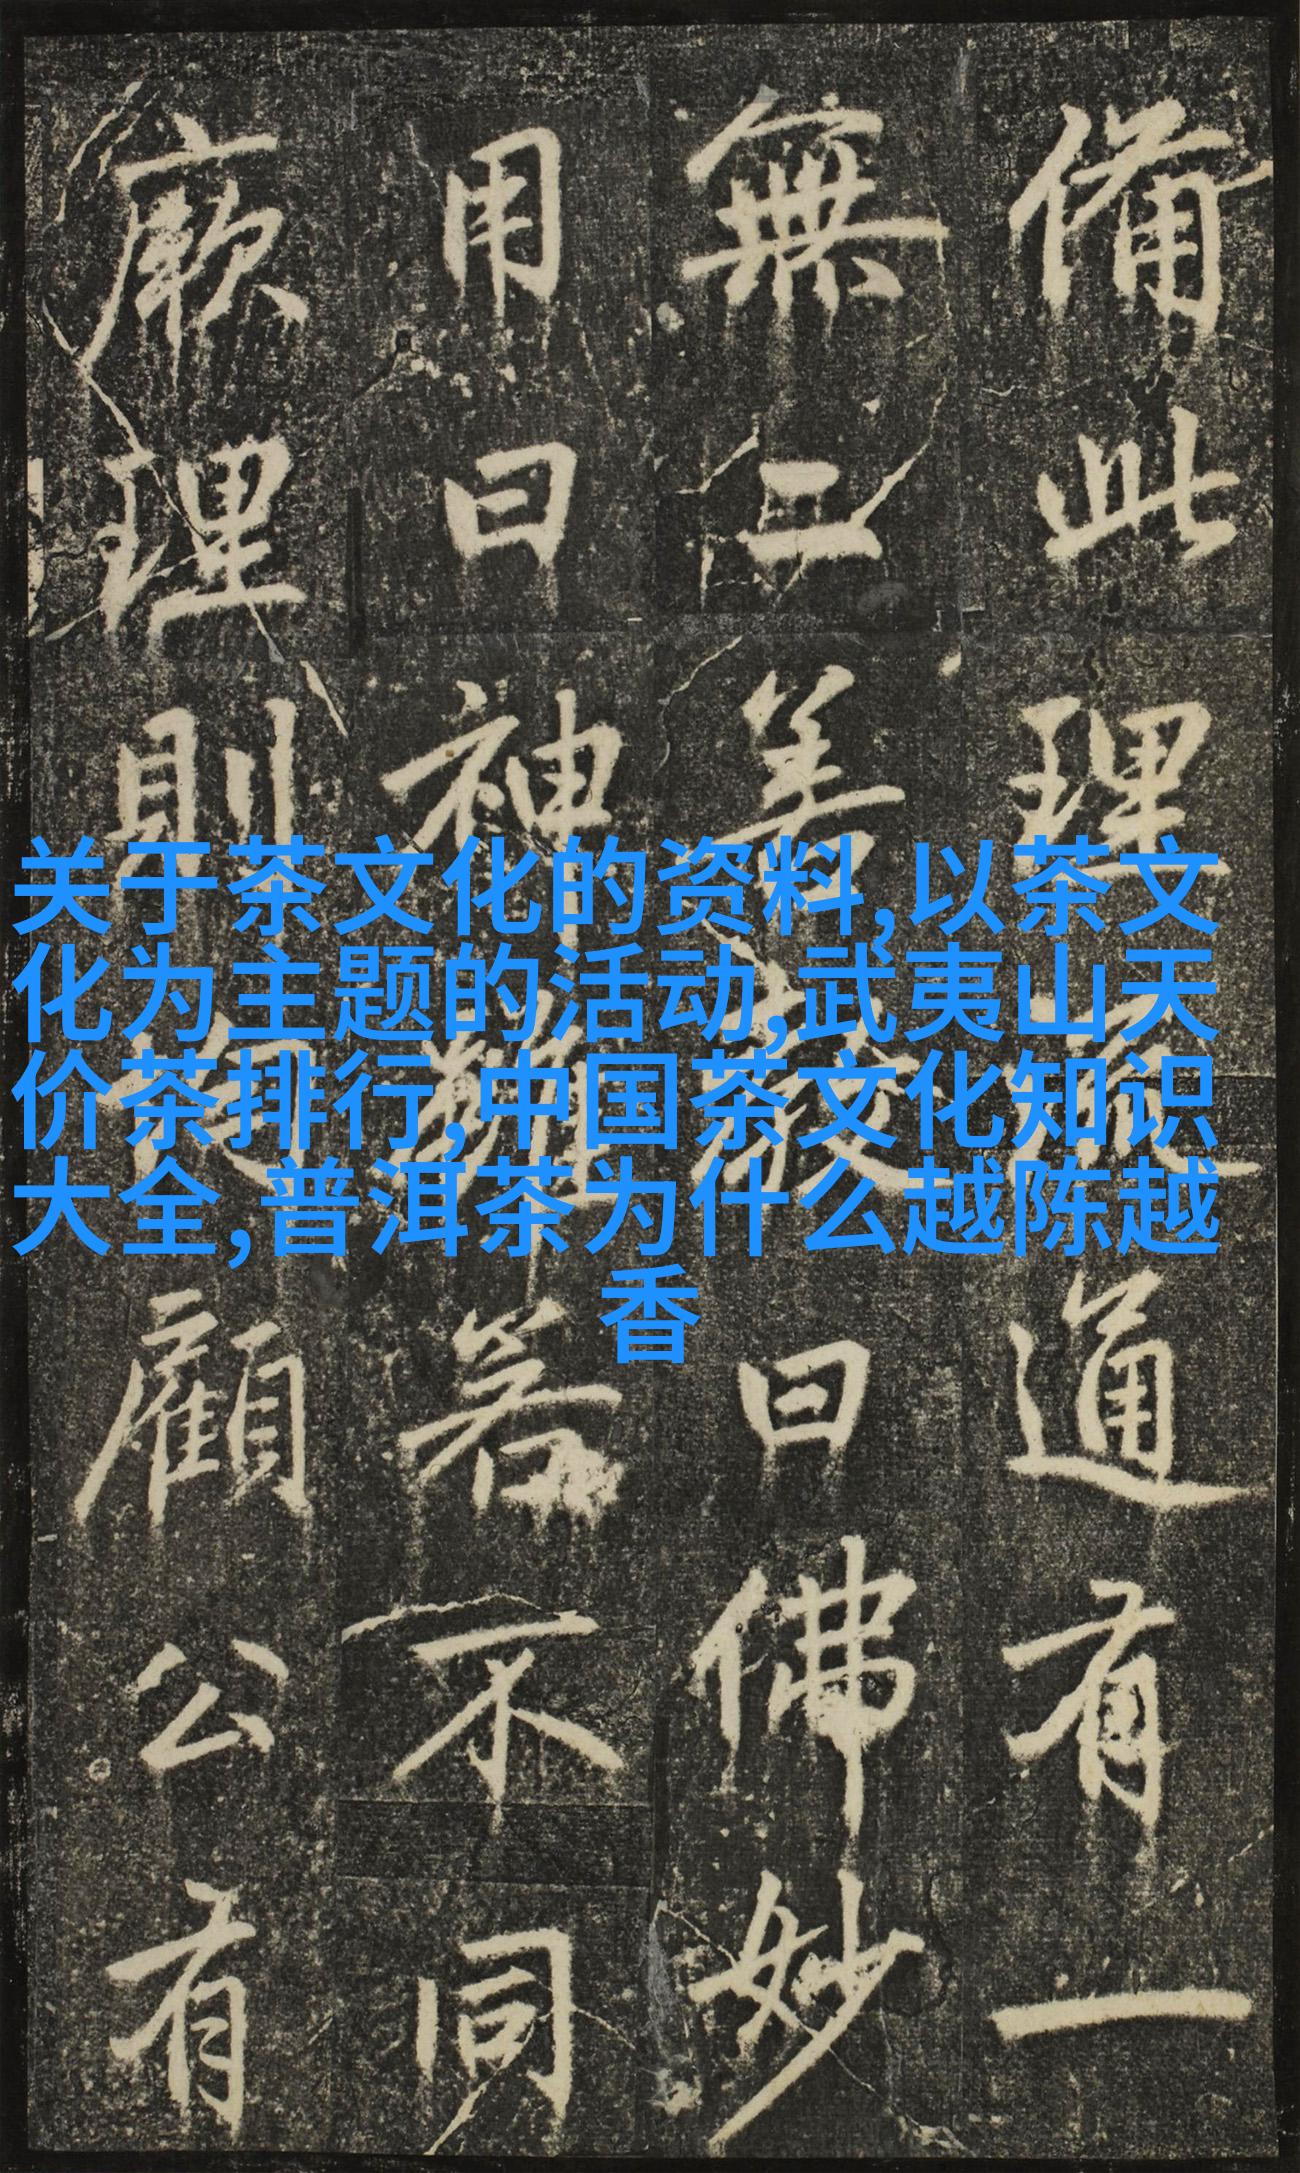 備此理通有一
無二善教曰佛妙
用曰神雖若不同
厥理則顧公有
关于茶文化的资料,以茶文
化为主题的活动,武夷山天
价茶排行,中国茶文化知识
大全,普洱茶为什么越陈越
香